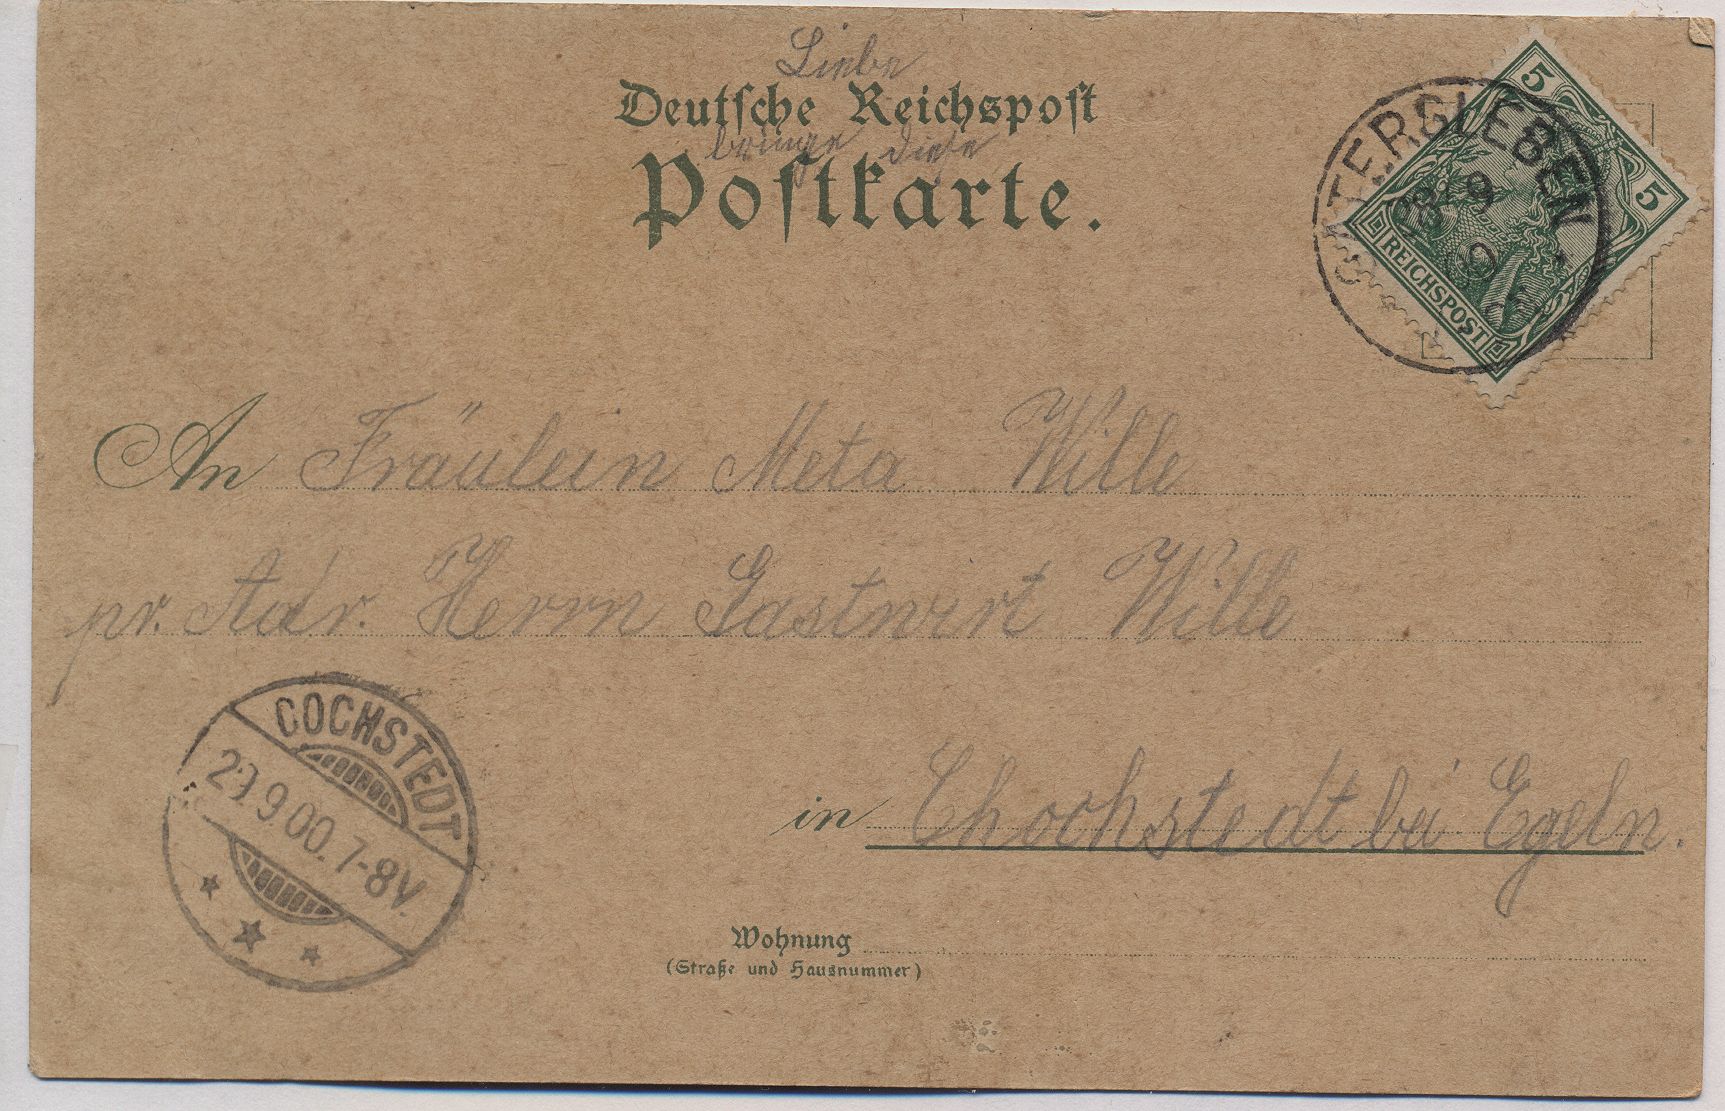 Liebe
Deutsche Reichspost
bringe diese
Postkarte.
5 5
REICHSPOST
GATERSLEBEN
28 9
An Fräulein Meta Wille
pr. Adr. Herrn Gastwirt Wille
in Chochstedt bei Egeln.
COCHSTEDT
29.9.00.7-8V.
Wohnung
(Straße und Hausnummer)